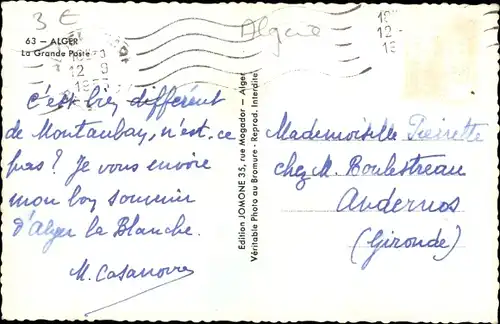 3 €
Algérie
63 — ALGER
La Grande Poste
12 - 9
12 -
c'est bien différent
de Montauban, n'est-ce
pas? Je vous envoie
mon bon souvenir
d'Alger la Blanche.
M. Casanova
Edition JOMONE 35, rue Mogador - Alger
Véritable Photo au Bromure - Reprod. Interdite
Mademoiselle Pierrette
chez M. Boulestreau
Andernos
(Gironde)